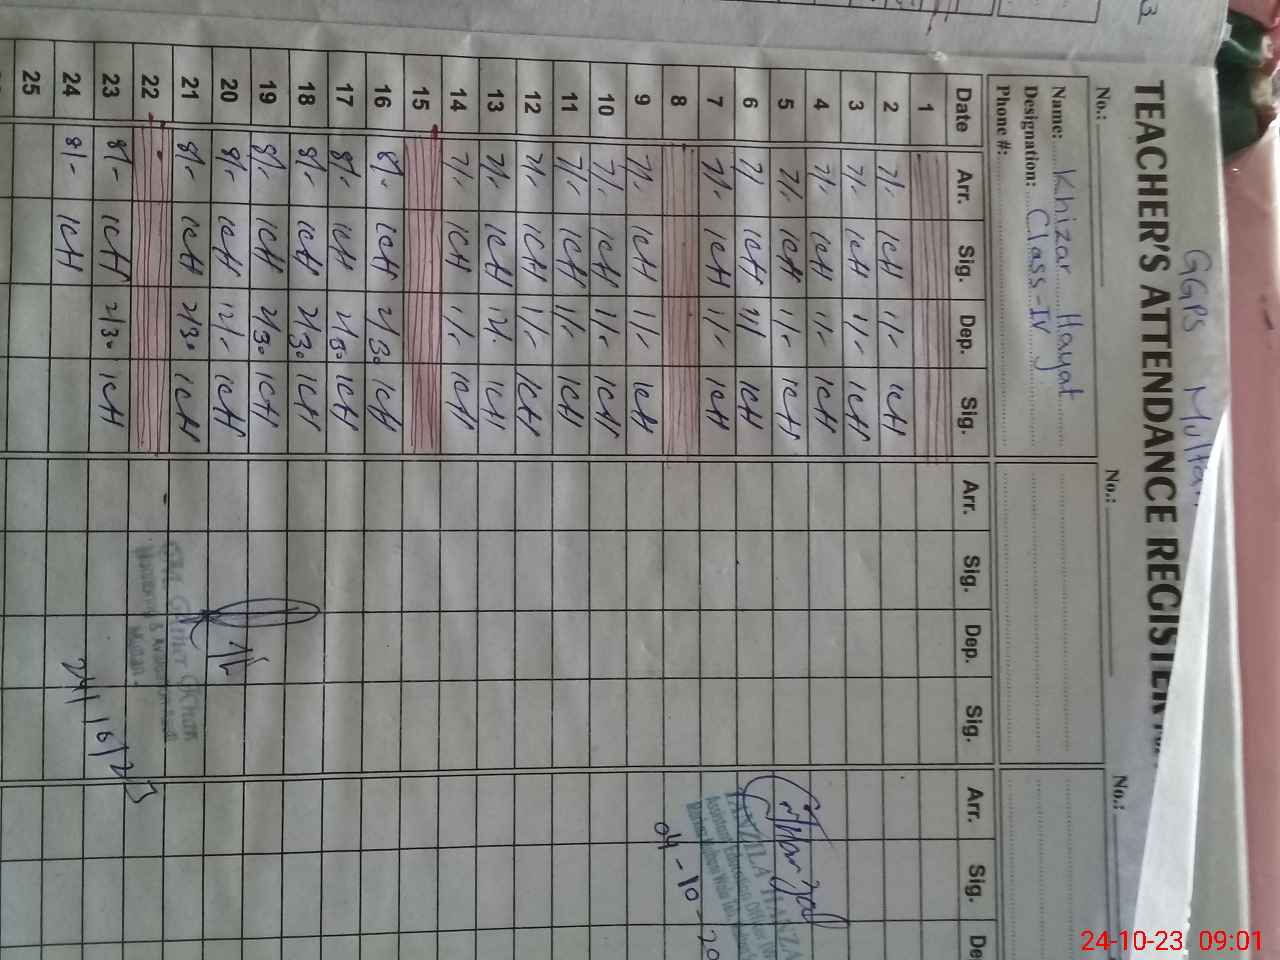 GGPS Multan
TEACHER'S ATTENDANCE REGISTER
No.: No.: No.:
Name: Khizar Hayat
Designation: Class-IV
Phone #:
Date Arr. Sig. Dep. Sig. Arr. Sig. Dep. Sig. Arr. Sig.
1
2 7/- KH 1/- KH
3 7/- KH 1/- KH
4 7/- KH 1/- KH
5 7/- KH 1/- KH
6 7/ KH 1/ KH
7 7/- KH 1/- KH
8
9 7/- KH 1/- KH
10 7/- KH 1/- KH
11 7/- KH 1/- KH
12 7/- KH 1/- KH
13 7/- KH 12/. KH
14 7/- KH 1/- KH
15
16 8/- KH 2/30 KH
17 8/- KH 2/30 KH
18 8/- KH 2/30 KH
19 8/- KH 2/30 KH
20 8/- KH 12/- KH
21 8/- KH 2/30 KH
22
23 8/- KH 2/30 KH
24 8/- KH
25
04-10-20
24/10/23
24-10-23 09:01